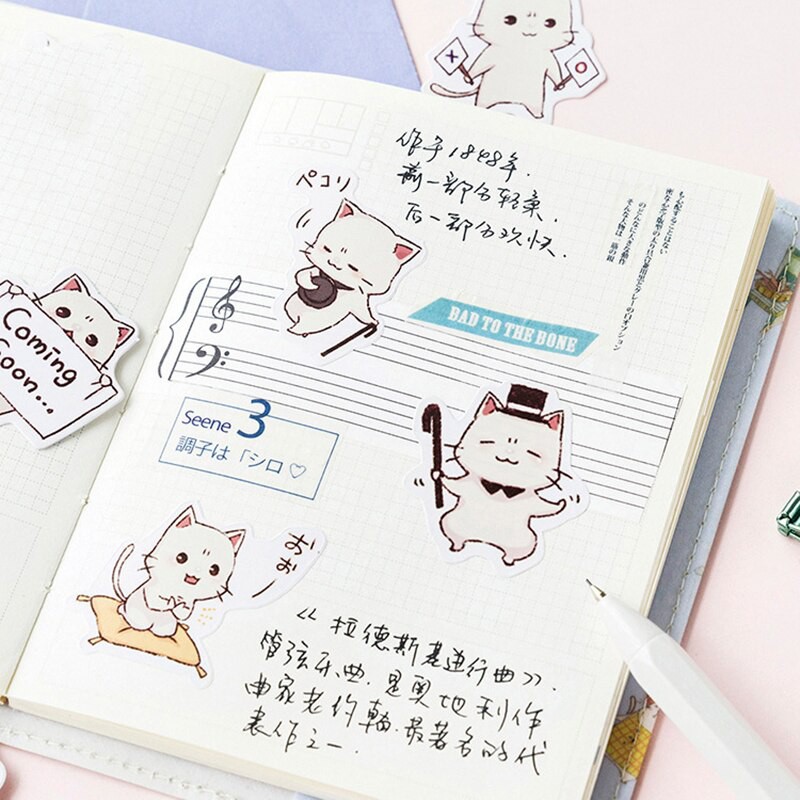 作于1848年.
前一部分轻柔.
后一部分欢快.
ペコリ
のどんなに大きな動作
BAD TO THE BONE
Coming
oon...
Seene 3
調子は「シロ♡
おぉー
《拉德斯基进行曲》.
管弦乐曲,是奥地利作
曲家老约翰.最著名的代
表作之一.